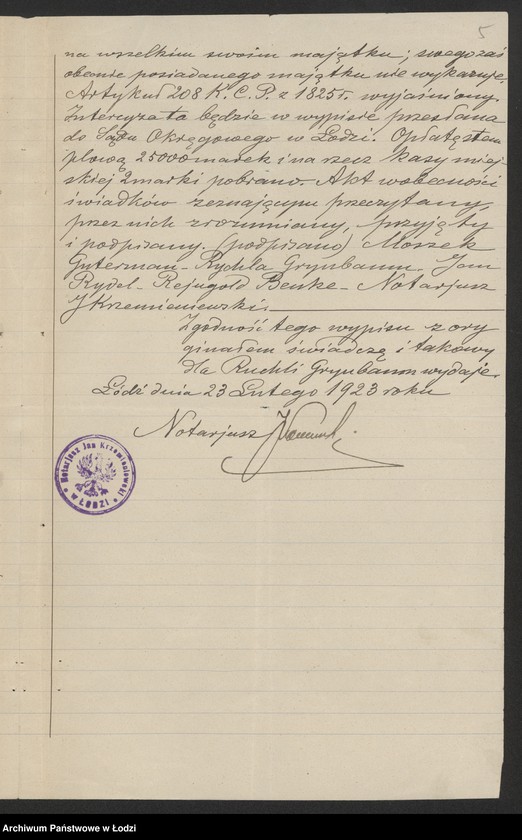 5
na wszelkim swoim majątku; swego zaś
obecnie posiadanego majątku nie wykazuje.
Artykuł 208 K. C. P. z 1825 r. wyjaśniony.
Intercyza ta będzie w wypisie przesłana
do Sądu Okręgowego w Łodzi. Opłatę stem
plową 25000 marek i na rzecz kasy miej
skiej 2 marki pobrano. Akt w obecności
świadków zeznającym przeczytany,
przez nich zrozumiany, przyjęty
i podpisany. (podpisano) Moszek
Guterman - Rychla Grynbaum - Jan
Rydel - Rejngold Benke - Notarjusz
J Krzemieniewski.
Zgodność tego wypisu z ory
ginałem świadczę i takowy
dla Ruchli Grynbaum wydaję.
Łódź dnia 23 Lutego 1923 roku
Notarjusz
Notarjusz Jan Krzemieniewski
w ŁODZI
Archiwum Państwowe w Łodzi